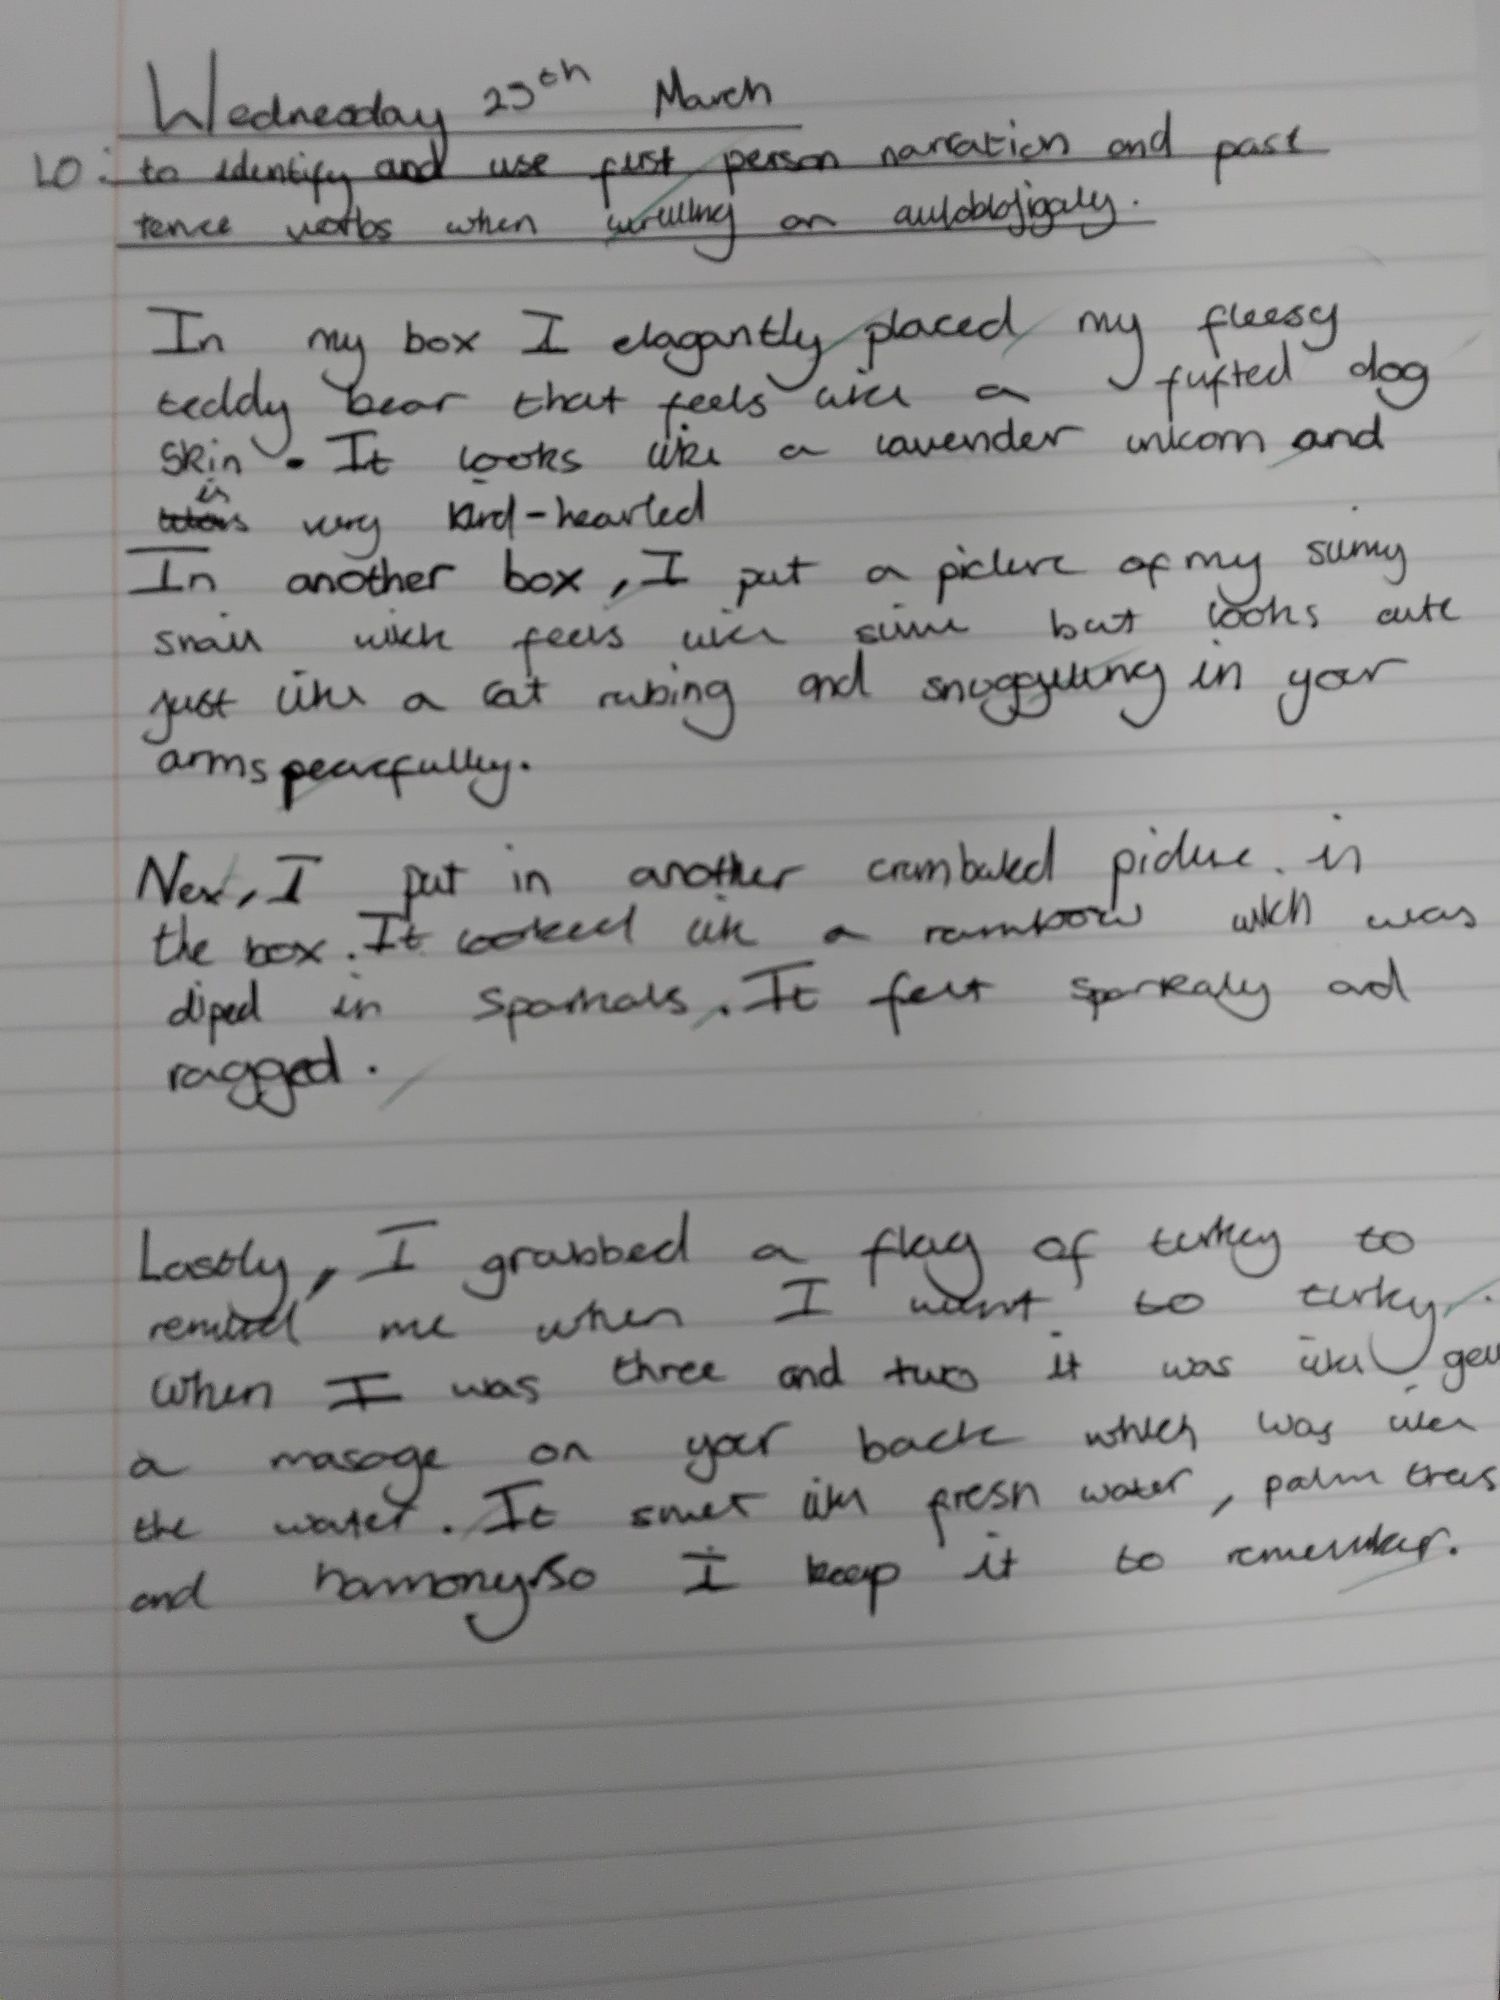 Wednesday 25th March
LO: to identify and use first person narration and past
tence verbs when writing an
In my box I elagantly placed my fleesy
teddy bear that feels like a fufted dog
skin. It looks like a lavender unicorn and
is very kind-hearted
In another box, I put a picture of my slimy
snail wich feels like slime but looks cute
just like a cat rubing and snuggling in your
arms peacefully.
Nex, I put in another crumbaled picture in
the box. It looked like a rainbow wich was
diped in sparkals. It felt sparkaly and
ragged.
Lastly, I grabbed a flag of turkey to
remind me when I went to turky.
When I was three and two it was like
a masage on your back which was like
the water. It smelt like fresh water, palm trees
and harmony. So I keep it to remember.